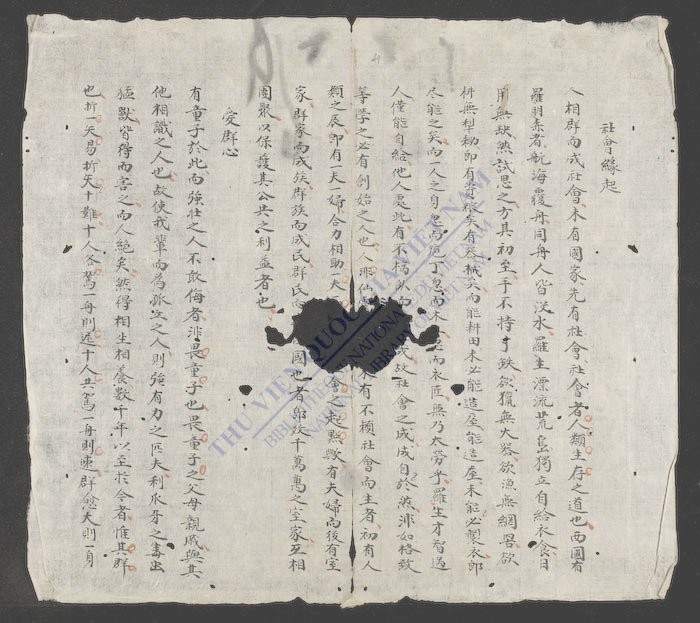 社會緣起
人相群而成社會未有國家先有社會社會者人類生存之道也西國有
羅羽柔者航海覆舟同舟人皆没水羅生漂流荒島獨立自給衣食日
用無缺然試思之方其初至手不持寸鉄欲獵無火器欲漁無網罟欲
耕無犁耡即有資粮矣有器械矣而能耕田未必能造屋能造屋未能必製衣即
尽能之矣而一人之身忽而庖丁忽而木匠忽而衣匠無乃太勞乎羅生才智過
人僅能自給他人處此有不槁故社會之成成自於然非如格致
等學之必有創始之人也人非仙人有不頼社會而生者初有人
類之辰即有一夫一婦合力相助一夫會之起點歟有夫婦而後有室
家群家而成族群族而成民群民而國也者即千萬萬之室家互相
團聚以保護其公共之利益者也
愛群心
有童子於此而強壮之人不敢侮者非畏童子也畏童子之父母親戚與其
他相識之人也故使我輩而為孤立之人則強有力之匹夫利爪牙之毒虫
猛獸皆得而害之而人絶矣然得相生相養数千年以至於今者惟其群
也折一矢易折矢十難十人各駕一舟則遲十人共駕一舟則速群愈大則一身
THƯ VIỆN QUỐC GIA VIỆT NAM